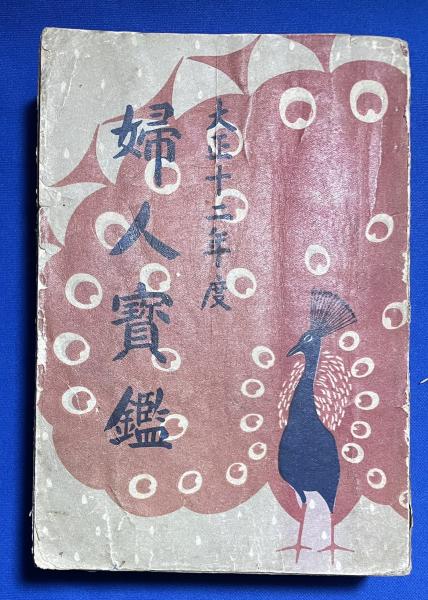 大正十二年度
婦人寳鑑